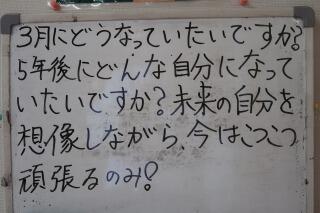 3月にどうなっていたいですか?
5年後にどんな自分になって
いたいですか?未来の自分を
想像しながら、今はこつこつ
頑張るのみ!